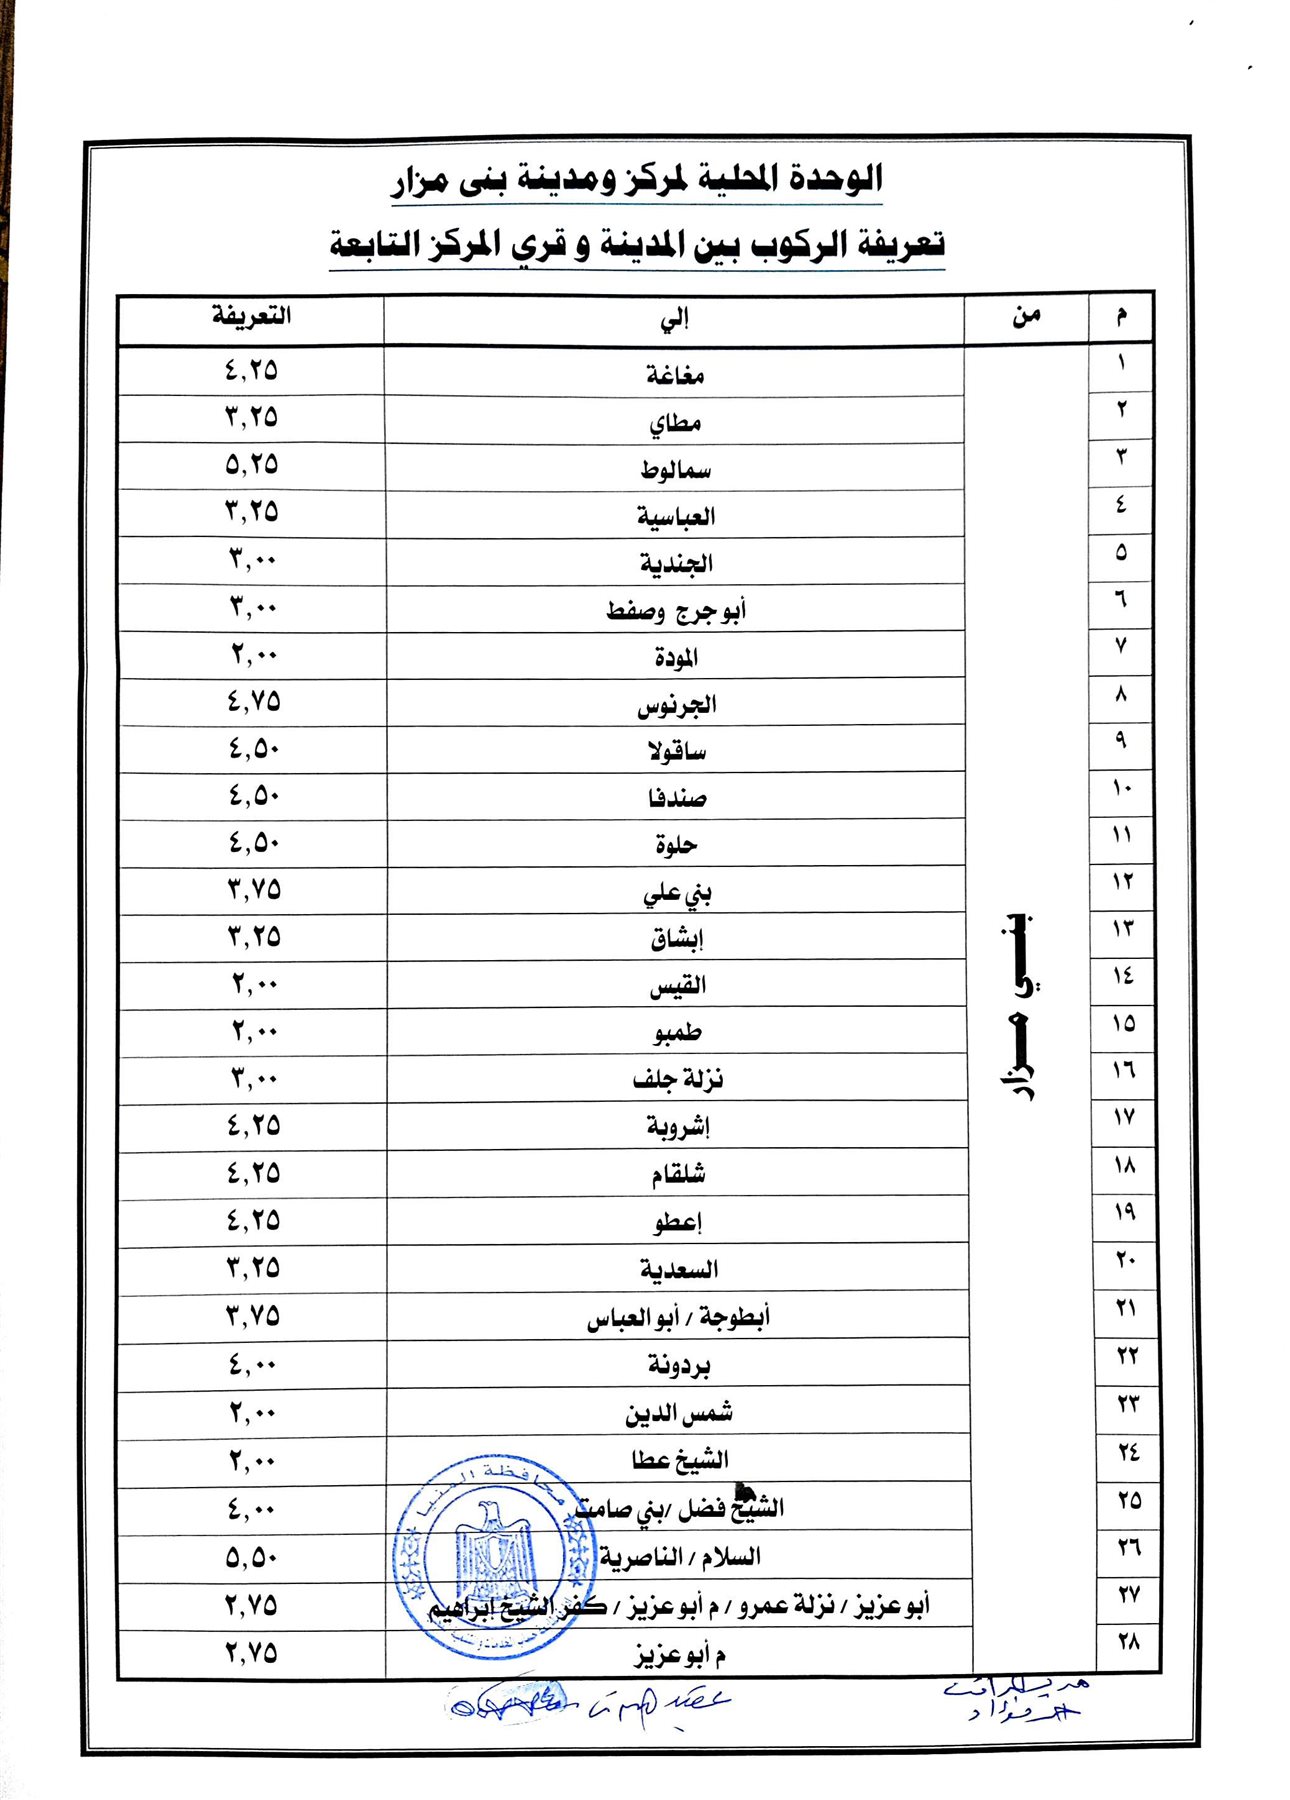 الوحدة المحلية لمركز ومدينة بنى مزار
تعريفة الركوب بين المدينة و قري المركز التابعة
م من إلي التعريفة
١ مغاغة ٤,٢٥
٢ مطاي ٣,٢٥
٣ سمالوط ٥,٢٥
٤ العباسية ٣,٢٥
٥ الجندية ٣,٠٠
٦ أبو جرج وصفط ٣,٠٠
٧ المودة ٢,٠٠
٨ الجرنوس ٤,٧٥
٩ ساقولا ٤,٥٠
١٠ صندفا ٤,٥٠
١١ حلوة ٤,٥٠
١٢ بني علي ٣,٧٥
١٣ إبشاق ٣,٢٥
بنـــي مـــزار
١٤ القيس ٢,٠٠
١٥ طمبو ٢,٠٠
١٦ نزلة جلف ٣,٠٠
١٧ إشروبة ٤,٢٥
١٨ شلقام ٤,٢٥
١٩ إعطو ٤,٢٥
٢٠ السعدية ٣,٢٥
٢١ أبطوجة / أبو العباس ٣,٧٥
٢٢ بردونة ٤,٠٠
٢٣ شمس الدين ٢,٠٠
٢٤ الشيخ عطا ٢,٠٠
٢٥ الشيخ فضل /بني صامت ٤,٠٠
٢٦ السلام / الناصرية ٥,٥٠
٢٧ أبو عزيز / نزلة عمرو / م أبو عزيز / كفر الشيخ إبراهيم ٢,٧٥
٢٨ م أبو عزيز ٢,٧٥
محافظة المنيا